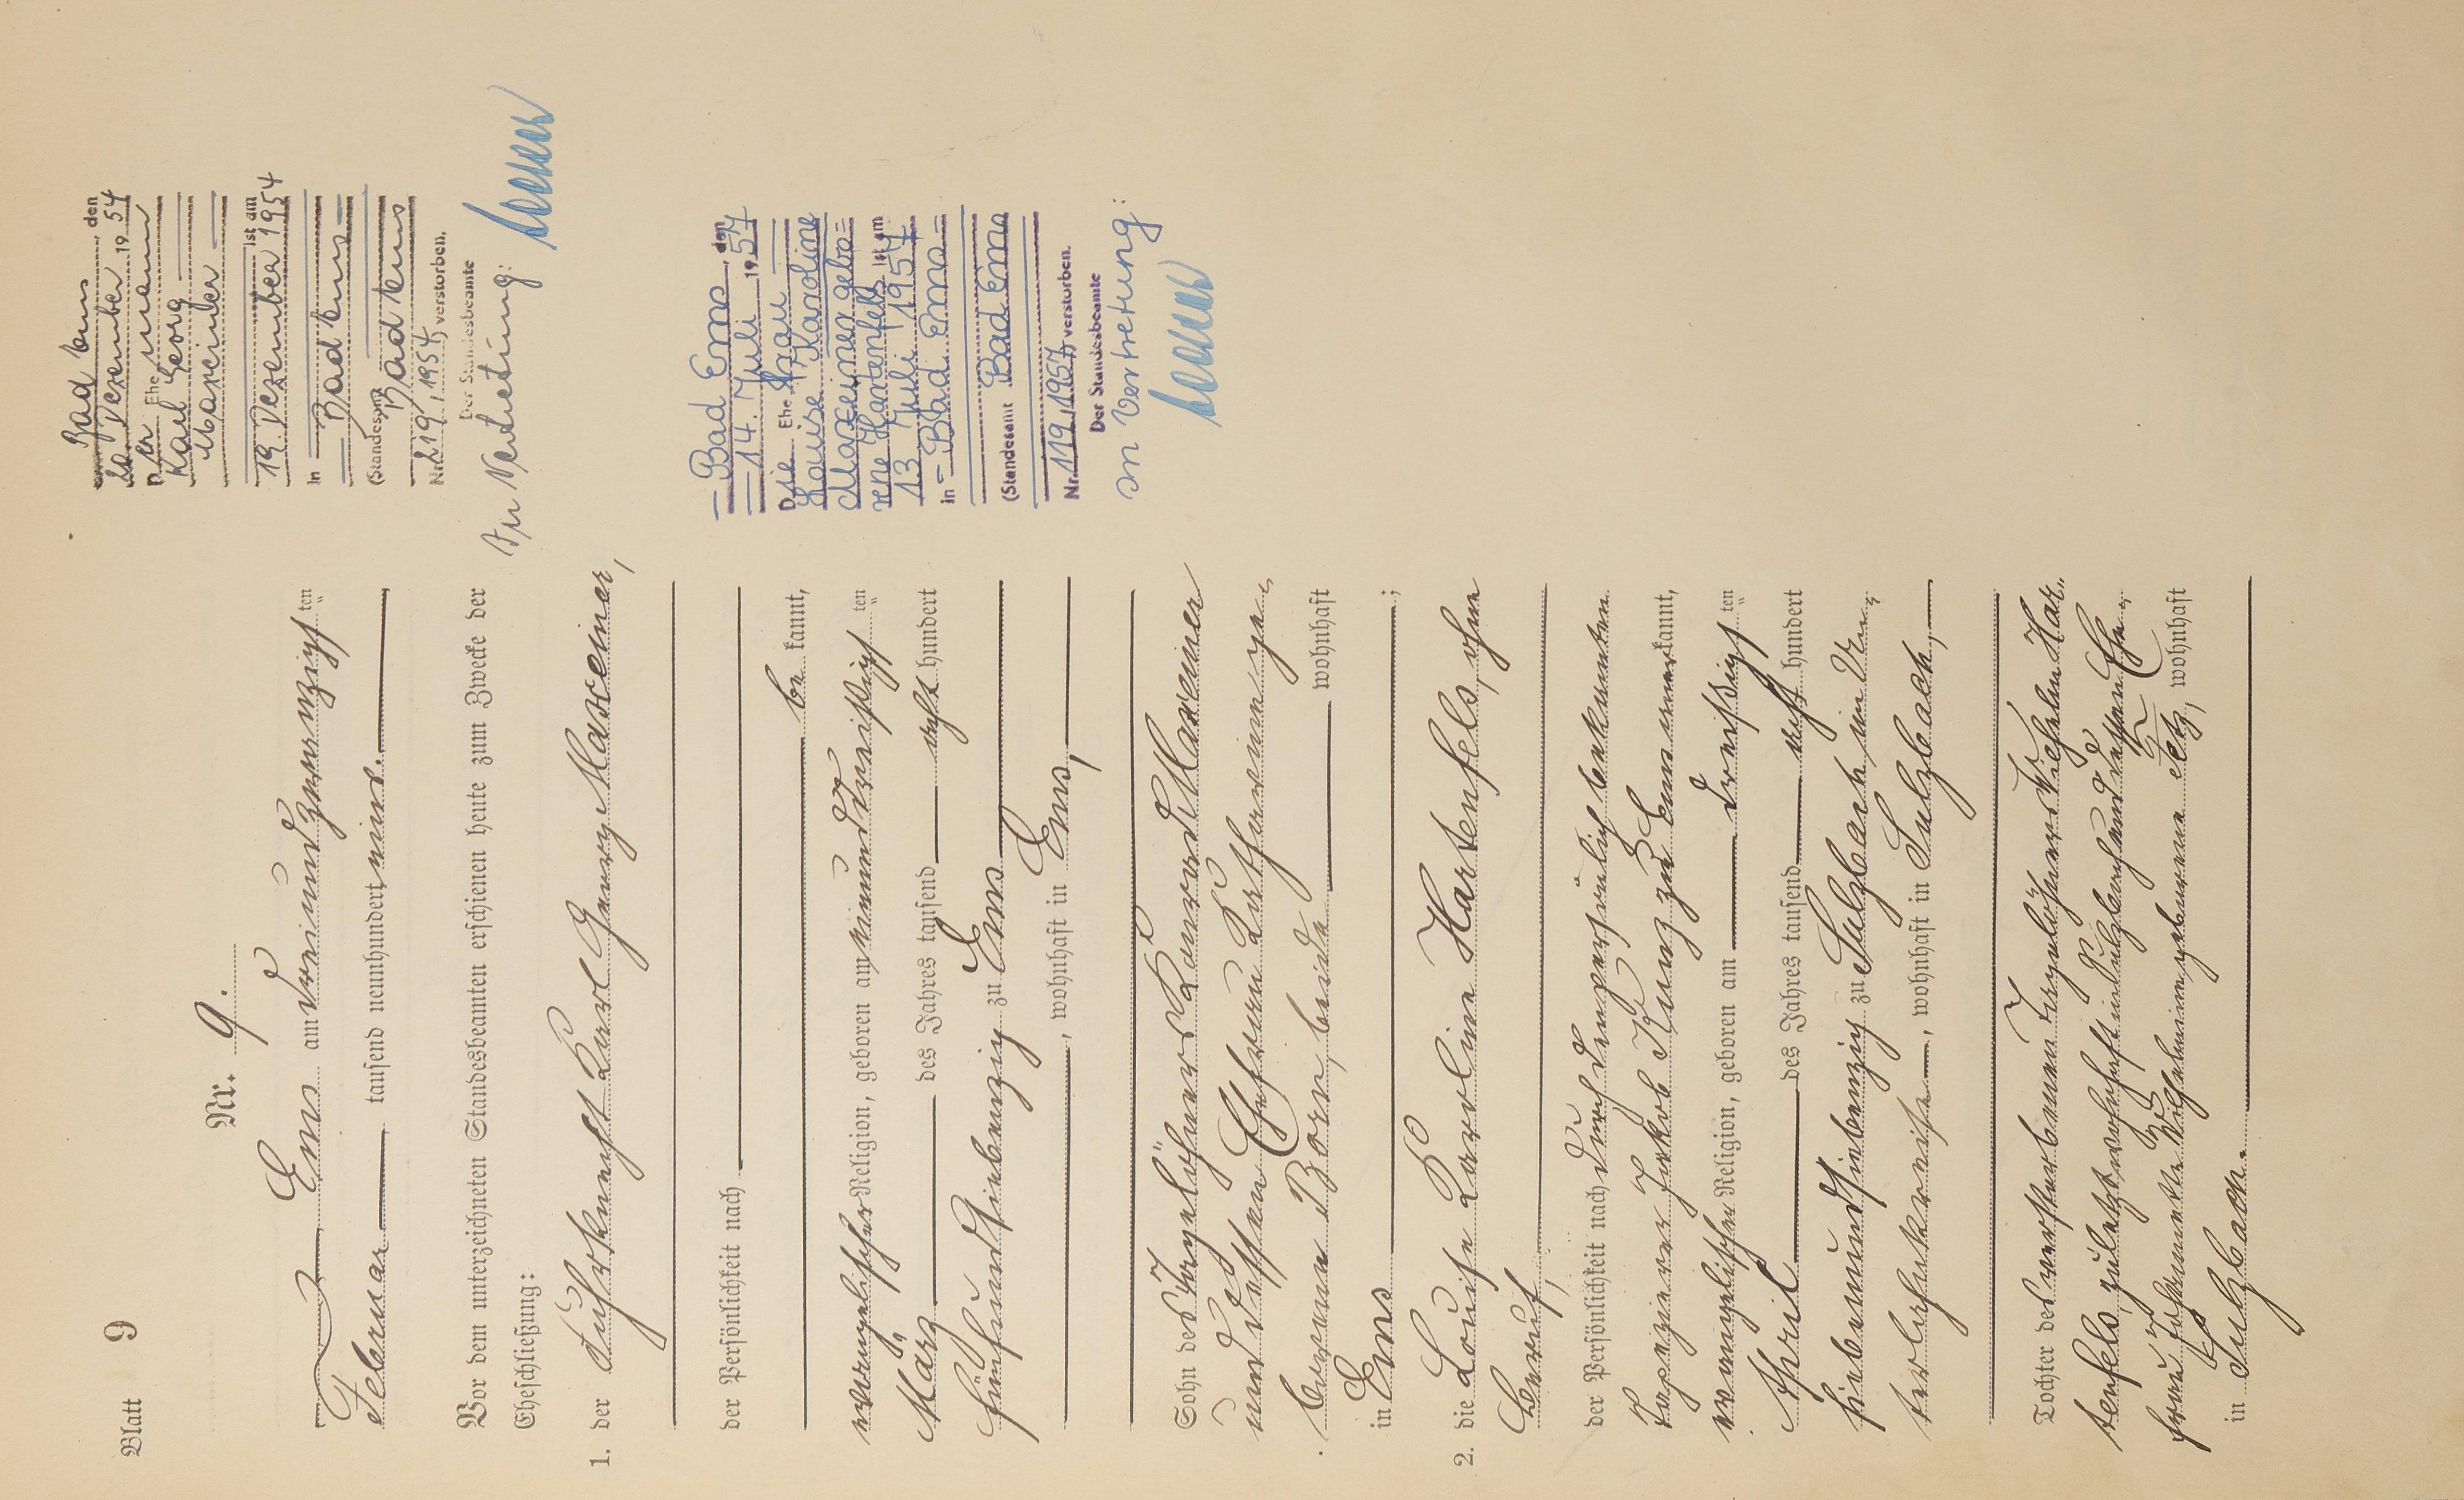 Blatt 9
Nr. 9.
Ems am dreiundzwanzigsten
Februar tausend neunhundert eins.
Vor dem unterzeichneten Standesbeamten erschienen heute zum Zwecke der
Eheschließung:
1. der Fuhrknecht Karl Georg Maxeiner,
der Persönlichkeit nach
be kannt,
evangelischer Religion, geboren am einunddreißigsten
März des Jahres tausend acht hundert
fünfundsiebenzig zu Ems
, wohnhaft in Ems,
Sohn des Tagelöhners Konrad Maxeiner
und dessen Ehefrau Katharine ge-
borene Born, beide wohnhaft
in Ems ;
2. die Louise Karoline Hartenfels, ohne
Beruf,
der Persönlichkeit nach durch den persönlich bekannten
Tapezierer Jakob Kunz zu Ems anerkannt,
evangelischer Religion, geboren am dreißigsten
April des Jahres tausend acht hundert
siebenundsiebenzig zu Sulzbach im Un-
terlahnkreise, wohnhaft in Sulzbach,
Tochter des verstorbenen Tagelöhners Wilhelm Har-
tenfels, zuletzt wohnhaft in Sulzbach und dessen Ehe-
frau Johannette Wilhelmine geborene wohnhaft
in Sulzbach.
Bad Ems, den
20. Dezember 1954
Der Ehemann
Karl Georg
Maxeiner
ist am
19. Dezember 1954
in Bad Ems
(Standesamt Bad Ems
Nr. 219/1954) verstorben.
Der Standesbeamte
In Vertretung:
Bad Ems, den
14. Juli 1957
Die Ehefrau
Louise Karoline
Maxeiner gebo=
rene Hartenfels ist am
13. Juli 1957
in =Bad Ems=
(Standesamt Bad Ems
Nr. 119/1957) verstorben.
Der Standesbeamte
In Vertretung: